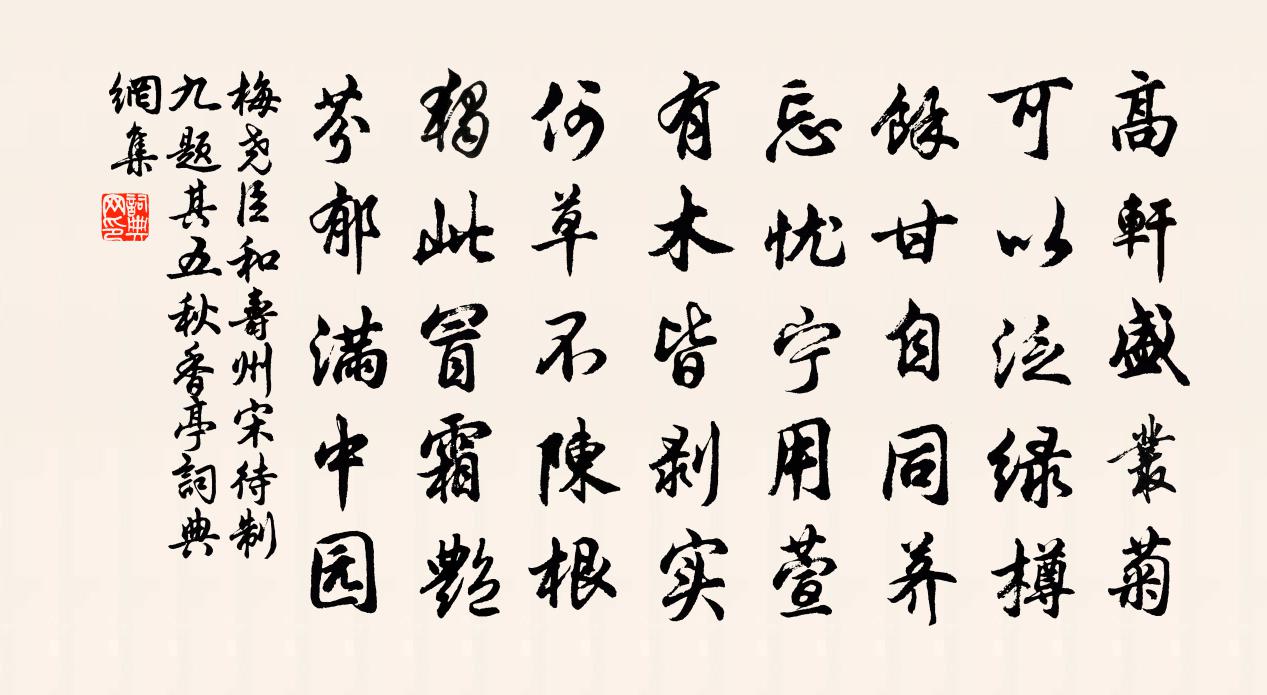 高軒盛叢菊
可以泛绿樽
餘甘自同荞
忘忧宁用萱
有木皆剥实
何草不陳根
獨此冒霜艷
芬郁满中园
梅尧臣和壽州宋待制
九题其五秋香亭詞典
網集
詞典网印